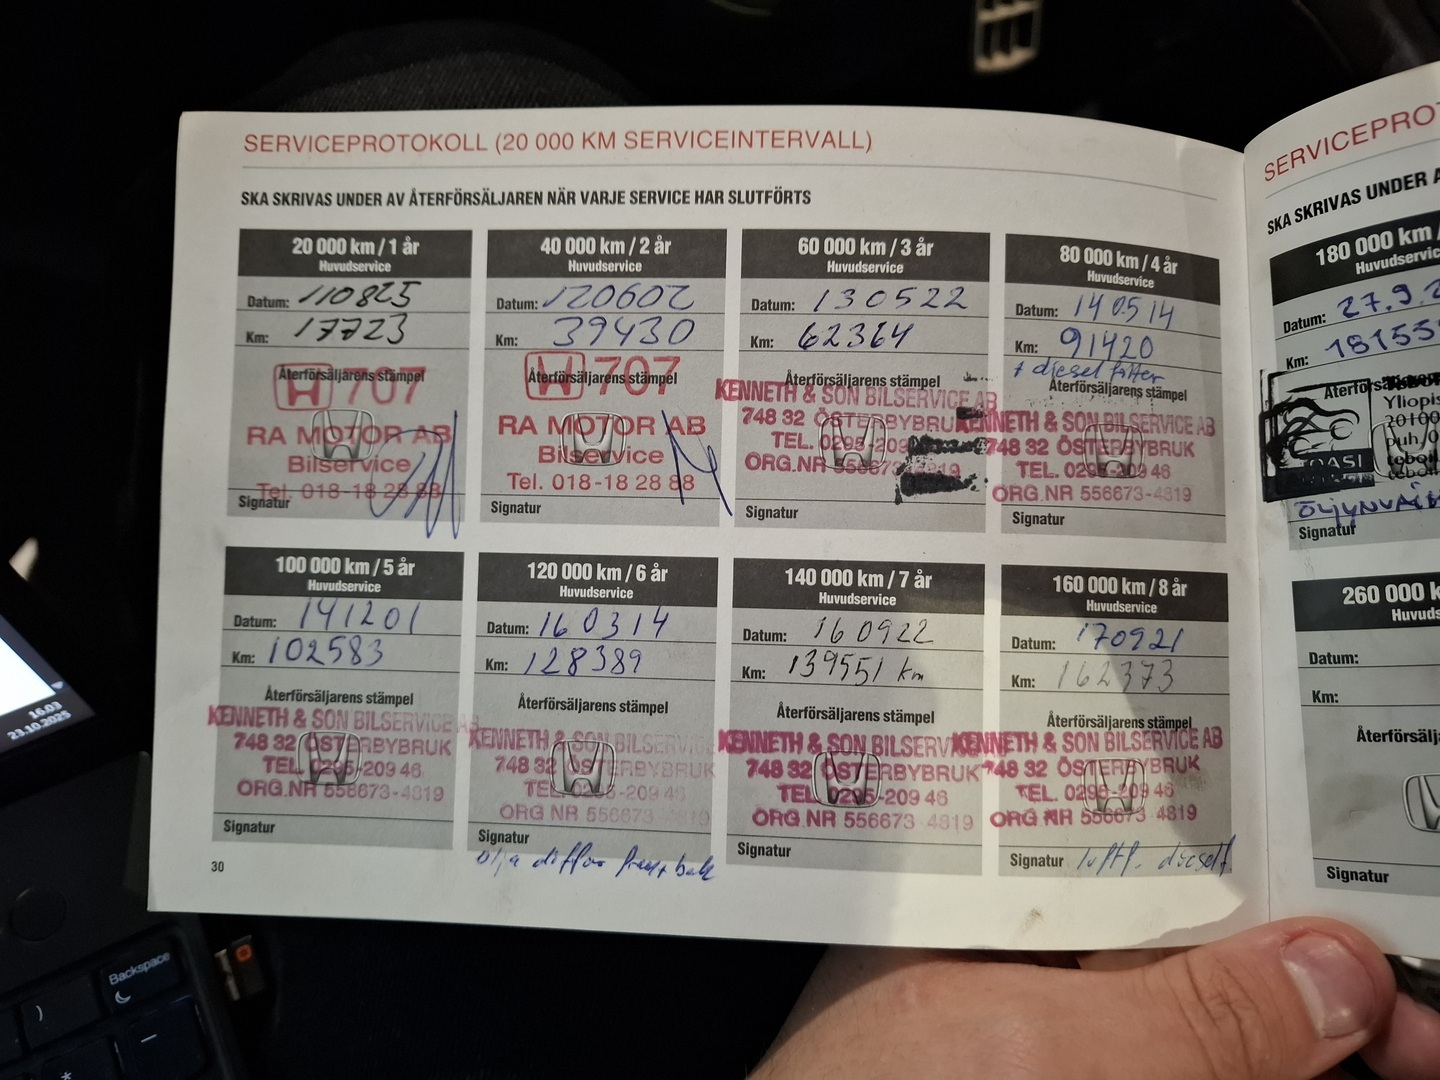 SERVICEPROTOKOLL (20 000 KM SERVICEINTERVALL)
SKA SKRIVAS UNDER AV ÅTERFÖRSÄLJAREN NÄR VARJE SERVICE HAR SLUTFÖRTS
20 000 km / 1 år
Huvudservice
Datum: 110825
Km: 17723
Återförsäljarens stämpel
H 707
RA MOTOR AB
Bilservice
Tel. 018-18 28 88
Signatur
40 000 km / 2 år
Huvudservice
Datum: 120602
Km: 39430
Återförsäljarens stämpel
H 707
RA MOTOR AB
Bilservice
Tel. 018-18 28 88
Signatur
60 000 km / 3 år
Huvudservice
Datum: 130522
Km: 62364
Återförsäljarens stämpel
KENNETH & SON BILSERVICE AB
748 32 ÖSTERBYBRUK
TEL. 0295-209
ORG.NR 556673-4819
Signatur
80 000 km / 4 år
Huvudservice
Datum: 140514
Km: 91420
+ diesel filter
Återförsäljarens stämpel
KENNETH & SON BILSERVICE AB
748 32 ÖSTERBYBRUK
TEL. 0295-209 46
ORG.NR 556673-4819
Signatur
100 000 km / 5 år
Huvudservice
Datum: 141201
Km: 102583
Återförsäljarens stämpel
KENNETH & SON BILSERVICE AB
748 32 ÖSTERBYBRUK
TEL. 0295-209 46
ORG.NR 556673-4819
Signatur
120 000 km / 6 år
Huvudservice
Datum: 160314
Km: 128389
Återförsäljarens stämpel
KENNETH & SON BILSERVICE
748 32 ÖSTERBYBRUK
TEL. 0295-209 46
ORG.NR 556673-4819
Signatur
olja diffar fram + bak
140 000 km / 7 år
Huvudservice
Datum: 160922
Km: 139551 km
Återförsäljarens stämpel
KENNETH & SON BILSERVICE
748 32 ÖSTERBYBRUK
TEL. 0295-209 46
ORG.NR 556673-4819
Signatur
160 000 km / 8 år
Huvudservice
Datum: 170921
Km: 162373
Återförsäljarens stämpel
KENNETH & SON BILSERVICE AB
748 32 ÖSTERBYBRUK
TEL. 0295-209 46
ORG.NR 556673-4819
Signatur luftf. dieself.
30
SERVICEPROT
SKA SKRIVAS UNDER A
180 000 km /
Huvudservice
Datum: 27.9.2
Km: 18155
Återförs
Yliopis
20100
puh.
OASI
Signatur
260 000 k
Huvuds
Datum:
Km:
Återförsälj
Signatur
16.03
23.10.2025
Backspace
)
*